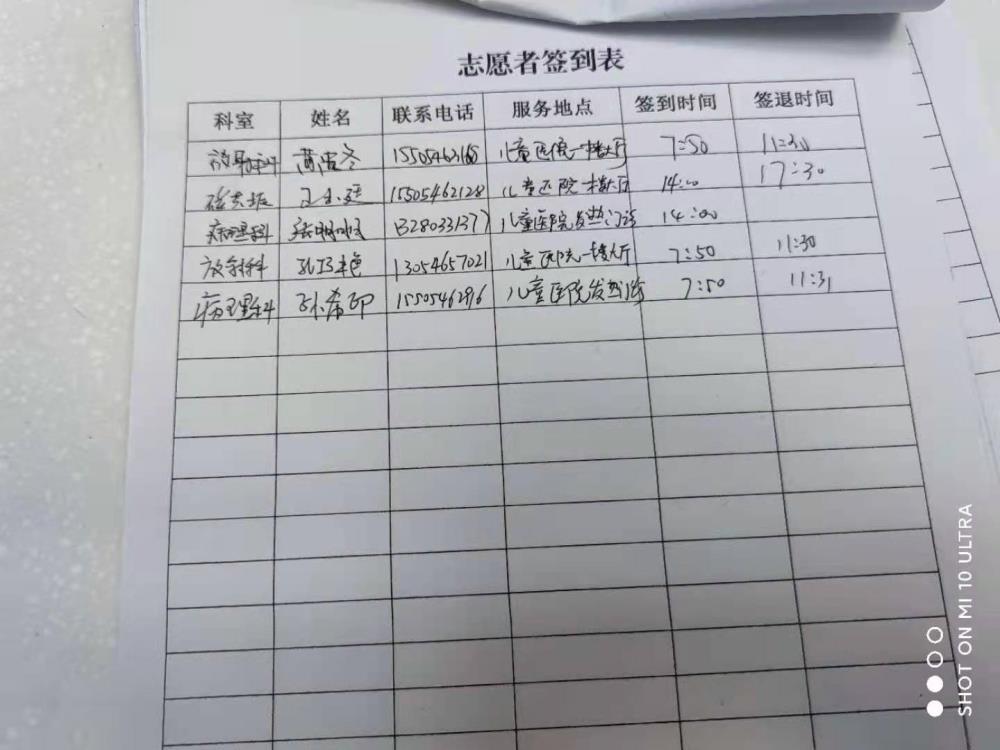 志愿者签到表
科室 姓名 联系电话 服务地点 签到时间 签退时间
放射科 15505463168 儿童医院一楼大厅 7:50 11:30
15505462128 儿童医院一楼大厅 14:00 17:30
病理科 13280331377 儿童医院发热门诊 14:00
放射科 13054657021 儿童医院一楼大厅 7:50 11:30
病理科 孙希印 儿童医院发热门诊 7:50 11:31
SHOT ON MI 10 ULTRA